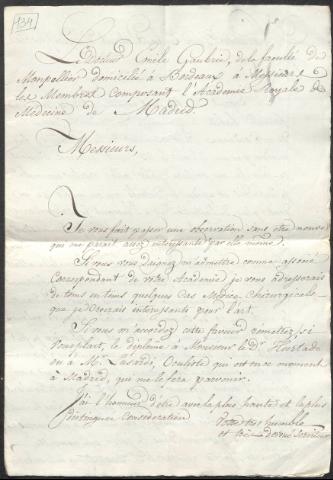 134
Le Docteur Emile Gaubric, de la faculté de
Montpellier domicilié à Bordeaux à Messieurs
les Membres composant l'Academie Royale de
Medecine de Madrid.
Messieurs,
Je vous fait passer une observation sans être
qui me parait assez interessante par elle même.
Si vous vous daignez m'admettre comme associé
Correspondant de votre Academie je vous adresserais
de tems en tems quelques Cas Medico Chirurgicale
que je Croirais interessants pour l'art.
Si vous m'accordez cette faveur remettez, s'il
vous plait, le diplome à Monsieur le Dr Hurtado
ou à Mr. Oculiste qui est en ce moment
à Madrid, qui me le fera parvenir.
J'ai l'honneur d'être avec la plus haute et la plus
distinguée Consideration
Votre très humble
et Serviteur